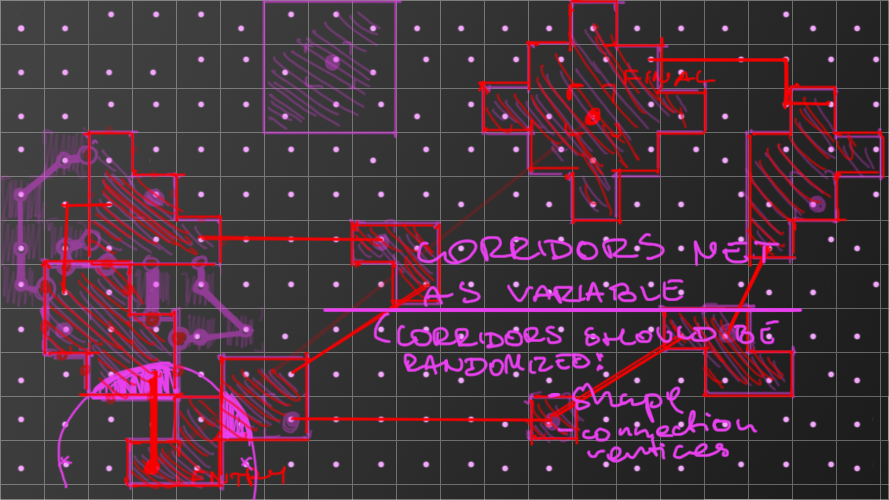 FINAL
CORRIDORS NET
AS VARIABLE
(CORRIDORS SHOULD BE
RANDOMIZED:
- shape
- connection
vertices
ENTRY